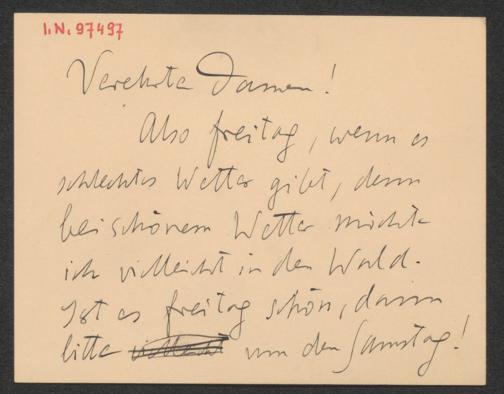 I.N. 97497
Verehrte Damen!
Also freitag, wenn es
schlechtes Wetter gibt, denn
bei schönem Wetter möchte
ich vielleicht in den Wald.
Ist es freitag schön, dann
bitte um den Samstag!